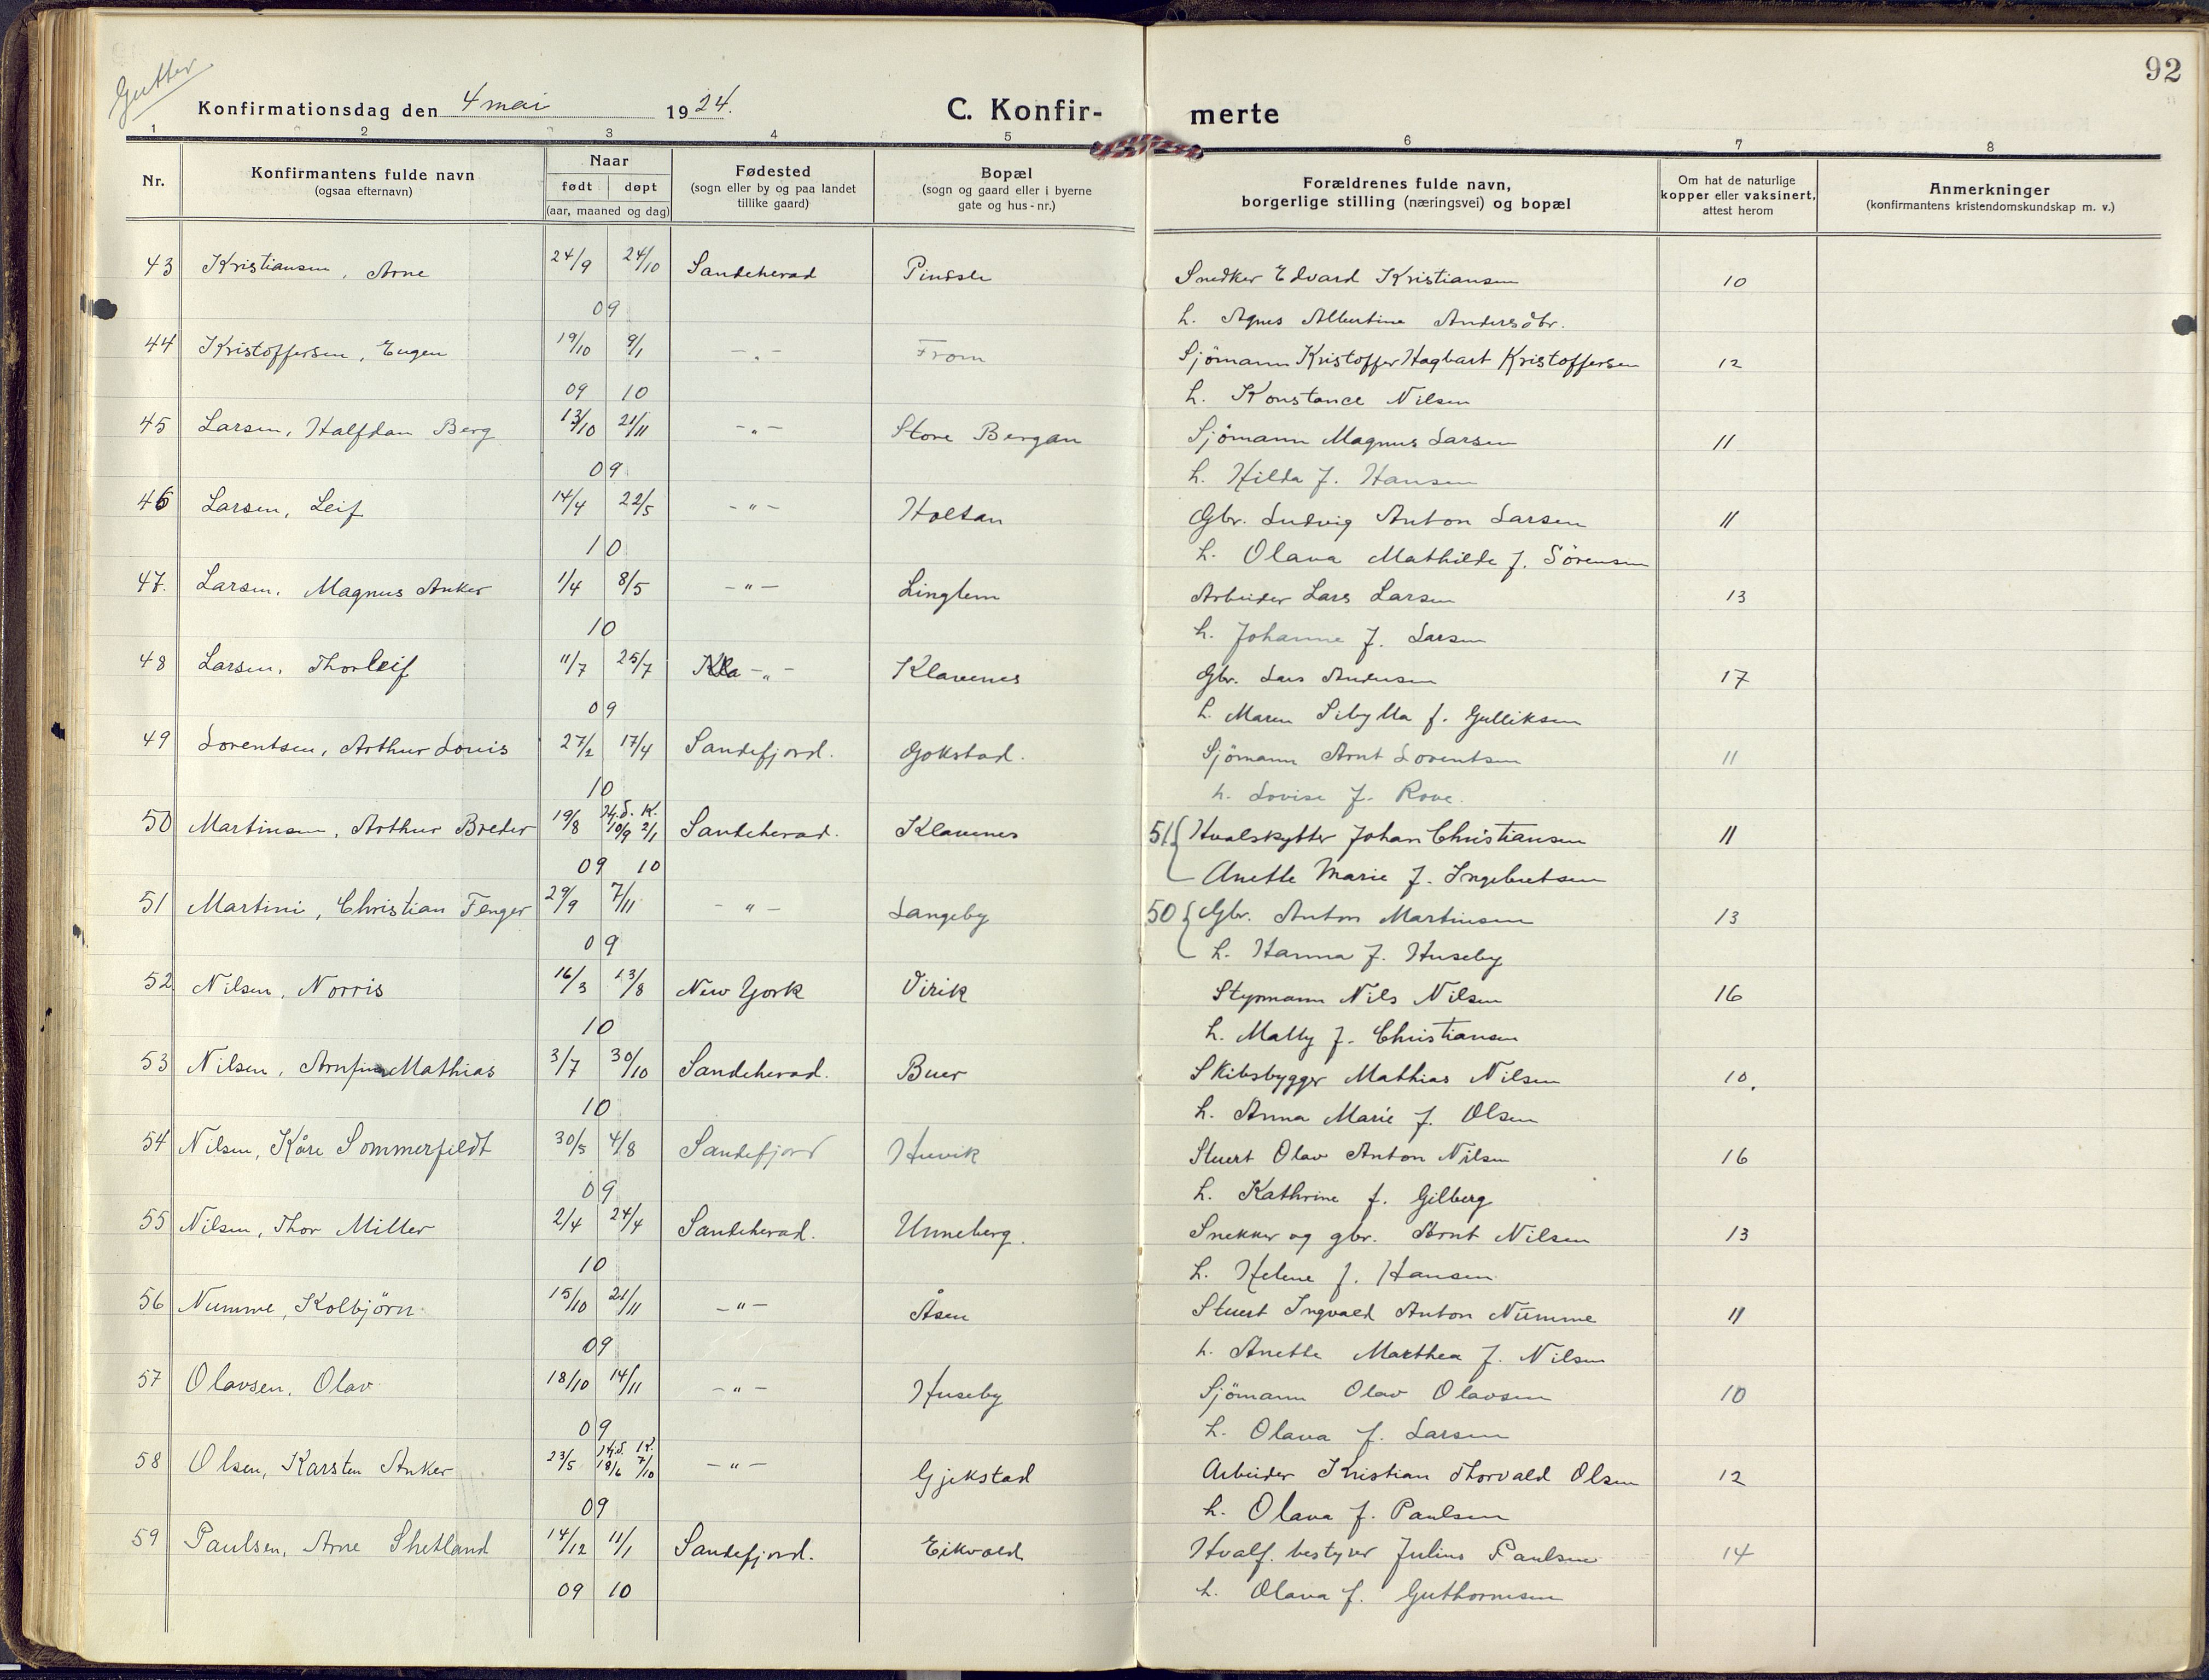 92
Gutter
Konfirmationsdag den 4 mai 1924. C. Konfir- merte
1 2 3 4 5 6 7 8
Nr. Konfirmantens fulde navn (ogsaa efternavn) Naar født døpt (aar, maaned og dag) Fødested (sogn eller by og paa landet tillike gaard) Bopæl (sogn og gaard eller i byerne gate og hus-nr.) Forældrenes fulde navn, borgerlige stilling (næringsvei) og bopæl Om hat de naturlige kopper eller vaksinert, attest herom Anmerkninger (konfirmantens kristendomskundskap m. v.)
43 Kristiansen, Arne 24/9 24/10 Sandeherad Pindsle Snedker Edvard Kristiansen 10
09 h. Agnes Albertine Andersdtr.
44 Kristoffersen, Eugen 19/10 9/1 -"- From Sjömann Kristoffer Hagbart Kristoffersen 12
09 10 h. Konstance Nilsen
45 Larsen, Halfdan Berg 13/10 21/11 -"- Store Bergan Sjömann Magnus Larsen 11
09 h. Hilda f. Hansen
46 Larsen, Leif 14/4 22/5 -"- Holtan Gbr. Ludvig Anton Larsen 11
10 h. Olava Mathilde f. Sörensen
47. Larsen, Magnus Anker 1/4 8/5 -"- Linglem Arbeider Lars Larsen 13
10 h. Johanne f. Larsen
48 Larsen, Thorleif 11/7 25/7 -"- Klavenes Gbr. Lars Andersen 17
09 h. Maren Sibylla f. Gulliksen
49 Lorentsen, Arthur Louis 27/2 17/4 Sandefjord. Gokstad. Sjömann Arnt Lorentsen 11
10 h. Lovise f. Rove.
50 Martinsen, Arthur Breder 19/8 Hj.d. K. 10/9 2/1 Sandeherad. Klavenes 51{ Hvalskytter Johan Christiansen 11
09 10 Anette Marie f. Ingebretsen
51 Martini, Christian Fenger 29/9 7/11 -"- Langeby 50{ Gbr. Anton Martinsen 13
09 h. Hanna f. Huseby
52 Nilsen, Norris 16/3 13/8 New York Virik Styrmann Nils Nilsen 16
10 h. Mally f. Christiansen
53 Nilsen, Arnfinn Mathias 3/7 30/10 Sandeherad. Buer Skibsbygger Mathias Nilsen 10.
10 h. Anna Marie f. Olsen
54 Nilsen, Kåre Sommerfeldt 30/5 4/8 Sandefjord Huvik Stuert Olav Anton Nilsen 16
09 h. Kathrine f. Gilberg
55 Nilsen, Thor Miller 2/4 24/4 Sandeherad. Unneberg. Snekker og gbr. Arnt Nilsen 13
10 h. Helene f. Hansen
56 Numme, Kolbjörn 15/10 21/11 -"- Åsen Stuert Ingvald Anton Numme 11
09 h. Anette Marthea f. Nilsen
57 Olavsen, Olav 18/10 14/11 -"- Huseby Sjömann Olav Olavsen 10
09 h. Olava f. Larsen
58 Olsen, Karsten Anker 23/5 Hj.d. K. 18/6 7/10 -"- Gjekstad Arbeider Kristian Thorvald Olsen 12
09 h. Olava f. Paulsen
59 Paulsen, Arne Shetland 14/12 11/1 Sandefjord. Eikvold Hvalf. bestyrer Julius Paulsen 14
09 10 h. Olava f. Guthormsen